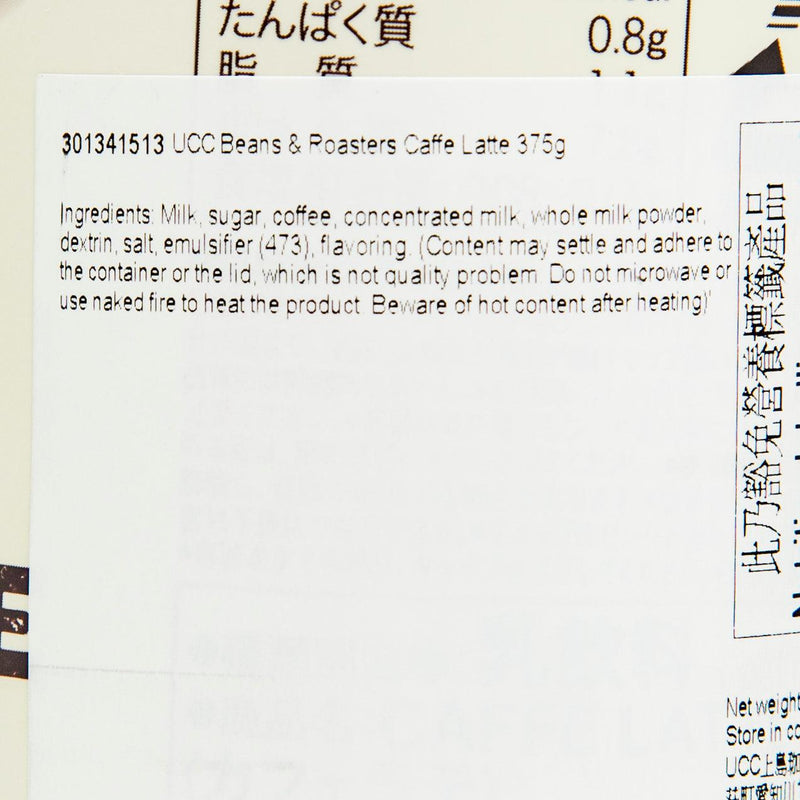 たんぱく質 0.8g
脂 質
301341513 UCC Beans & Roasters Caffe Latte 375g
Ingredients: Milk, sugar, coffee, concentrated milk, whole milk powder,
dextrin, salt, emulsifier (473), flavoring. (Content may settle and adhere to
the container or the lid, which is not quality problem. Do not microwave or
use naked fire to heat the product. Beware of hot content after heating)
此乃豁免營養標籤產品
Net weight
Store in co
UCC上島珈